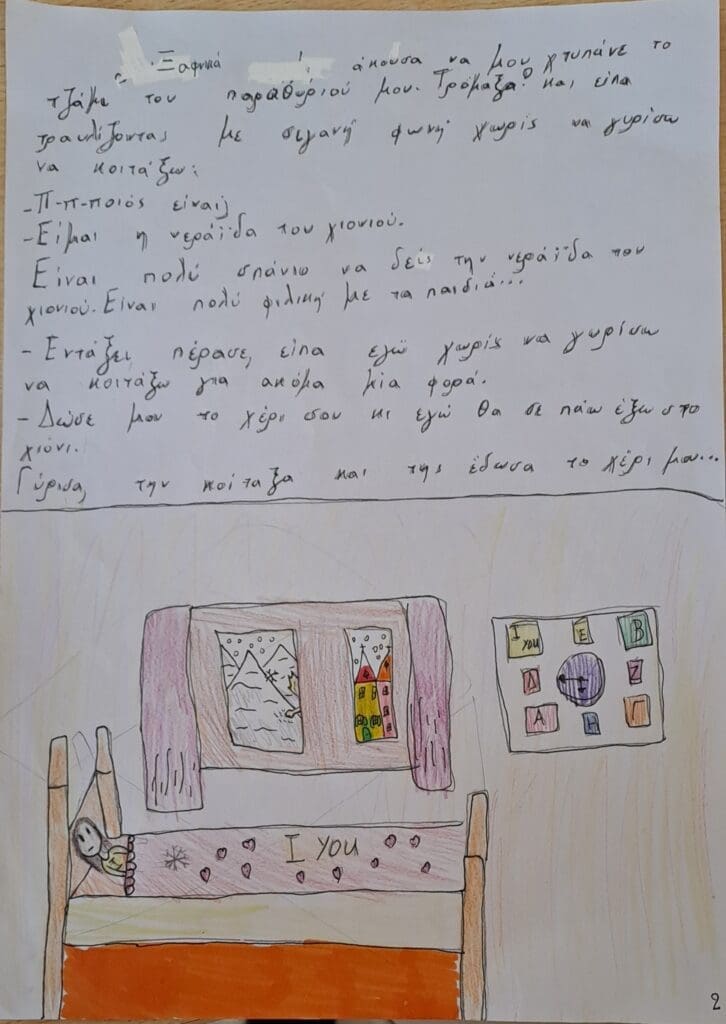 Ξαφνικά άκουσα να μου χτυπάνε το
τζάμι του παραθυριού μου. Τρόμαξα! και είπα
τραυλίζοντας με σιγανή φωνή χωρίς να γυρίσω
να κοιτάξω:
-Π-π-ποιός είναι;
-Είμαι η νεράϊδα του χιονιού.
Είναι πολύ σπάνιο να δεις την νεράϊδα του
χιονιού. Είναι πολύ φιλική με τα παιδιά...
- Εντάξει πέρασε, είπα εγώ χωρίς να γυρίσω
να κοιτάξω για ακόμα μία φορά.
- Δώσε μου το χέρι σου κι εγώ θα σε πάω έξω στο
χιόνι.
Γύρισα, την κοίταξα και της έδωσα το χέρι μου...
I YOU
E
B
Δ
Z
A
H
Γ
I YOU
2